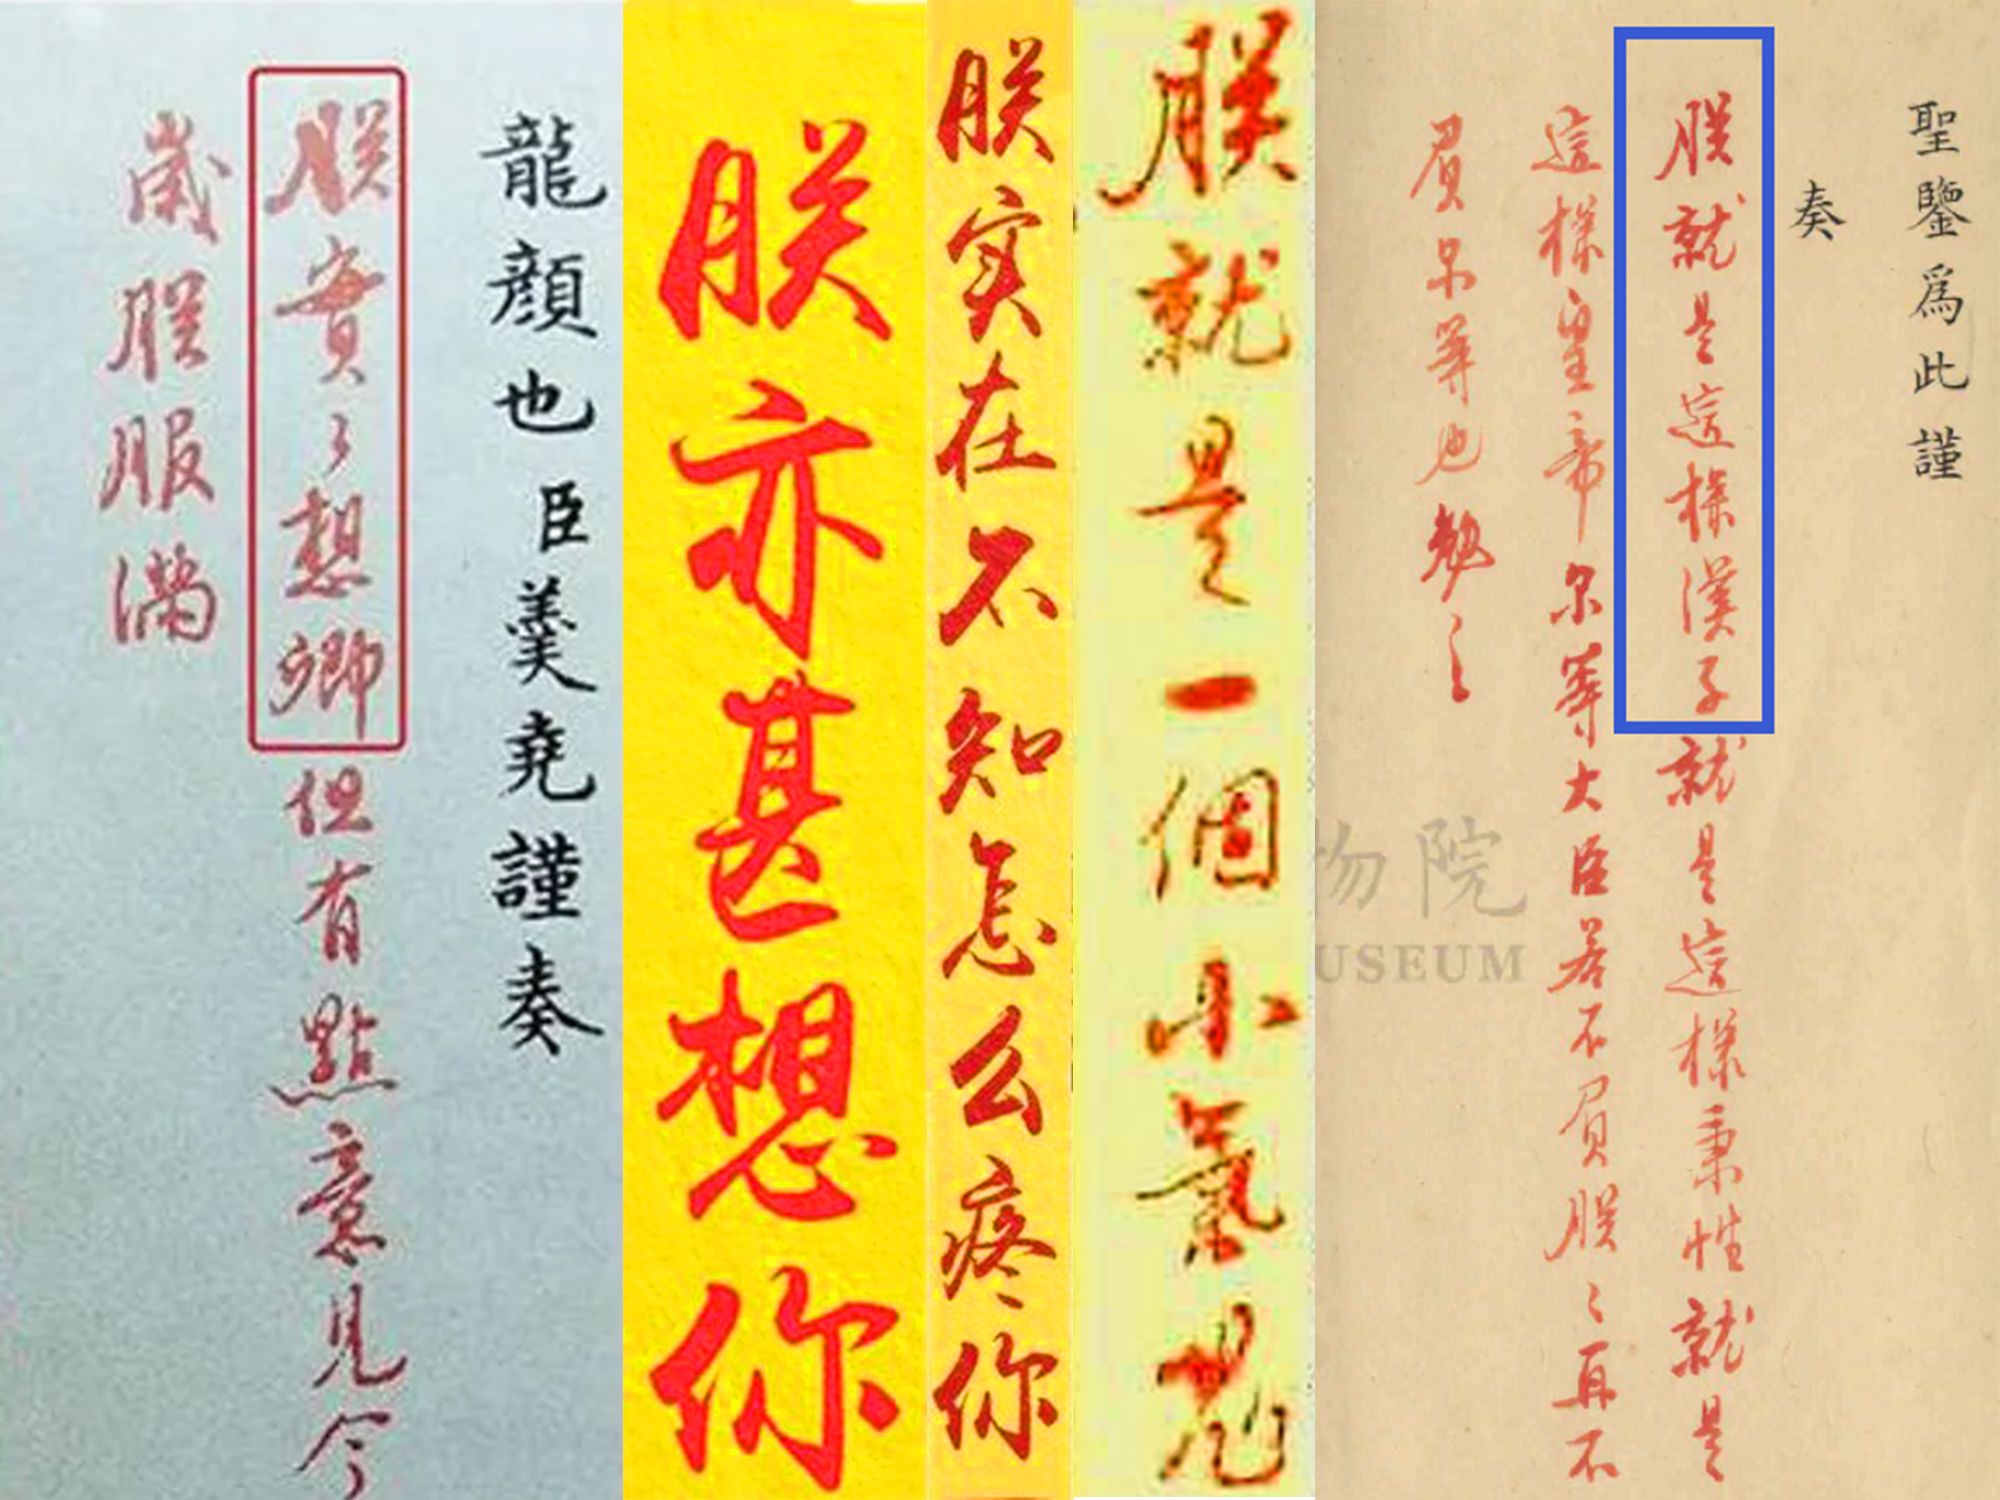 龍顏也臣羹堯謹奏
朕實々想卿但有點意見今
歲朕服滿
朕亦甚想你
朕实在不知怎么疼你
朕就是一個小氣鬼
聖鑒爲此謹
奏
朕就是這樣漢子就是這樣秉性就是
這樣皇帝尔等大臣若不負朕々再不
負尔等也勉之
物院
USEUM